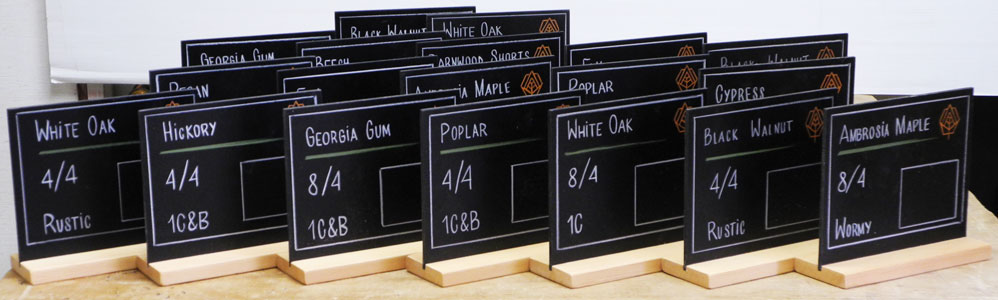 Black Walnut
White Oak
Georgia Gum
Beech
Barnwood Shorts
Black Walnut
Pecan
Ambrosia Maple
Poplar
Cypress
White Oak
4/4
Rustic
Hickory
4/4
1C&B
Georgia Gum
8/4
1C&B
Poplar
4/4
1C&B
White Oak
8/4
1C
Black Walnut
4/4
Rustic
Ambrosia Maple
8/4
Wormy.